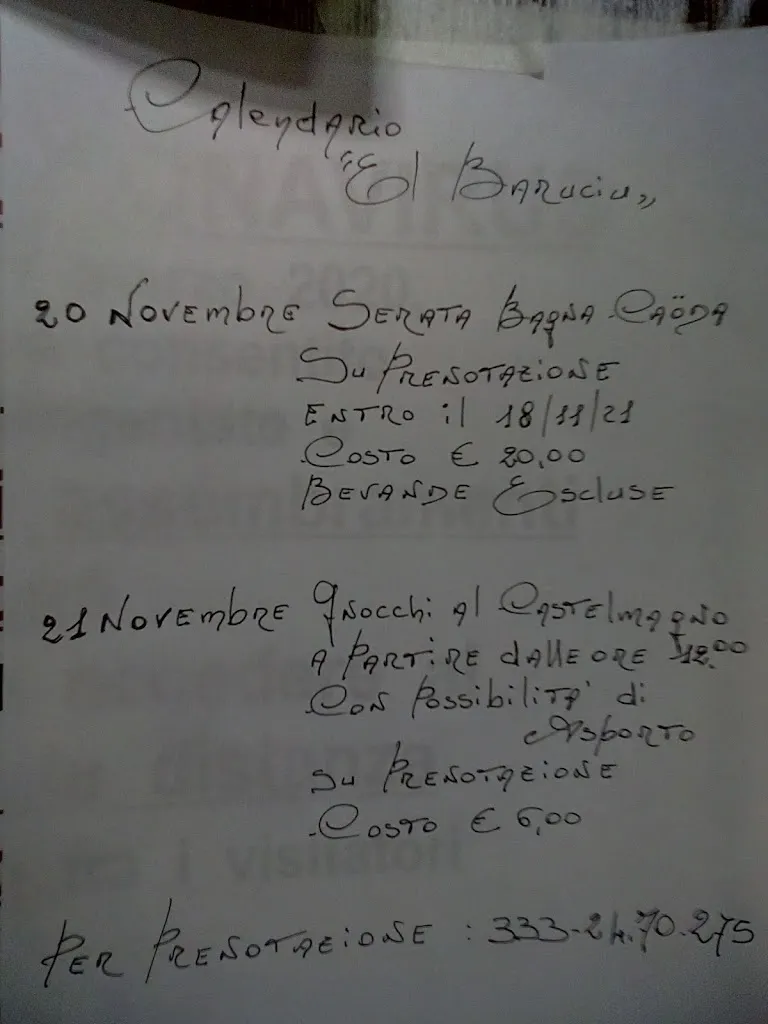 Calendario
"El Baruciu"
20 Novembre Serata Bagna Caöda
Su Prenotazione
Entro il 18/11/21
Costo € 20,00
Bevande Escluse
21 Novembre Gnocchi al Castelmagno
a partire dalle ore 12.00
Con possibilità di
Asporto
su Prenotazione
Costo € 6,00
Per Prenotazione : 333-24.70.275
2020
visitatori